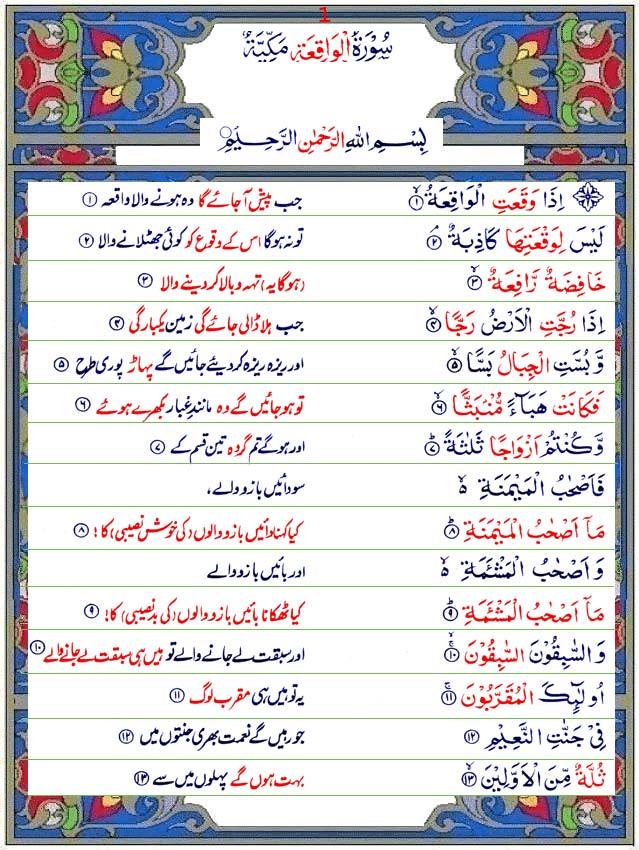 1
سُوْرَةُ الْوَاقِعَةِ مَكِّيَّةٌ
بِسْمِ اللّٰهِ الرَّحْمٰنِ الرَّحِيْمِ
اِذَا وَقَعَتِ الْوَاقِعَةُ ۙ﴿۱﴾ جب پیش آ جائے گا وہ ہونے والا واقعہ ﴿۱﴾
لَيْسَ لِوَقْعَتِهَا كَاذِبَةٌ ۘ﴿۲﴾ تو نہ ہوگا اس کے وقوع کو کوئی جھٹلانے والا ﴿۲﴾
خَافِضَةٌ رَّافِعَةٌ ۙ﴿۳﴾ (ہوگا یہ) تہہ و بالا کر دینے والا ﴿۳﴾
اِذَا رُجَّتِ الْاَرْضُ رَجًّا ۙ﴿۴﴾ جب ہلا ڈالی جائے گی زمین یکبارگی ﴿۴﴾
وَّ بُسَّتِ الْجِبَالُ بَسًّا ۙ﴿۵﴾ اور ریزہ ریزہ کر دیئے جائیں گے پہاڑ پوری طرح ﴿۵﴾
فَكَانَتْ هَبَآءً مُّنْۢبَثًّا ۙ﴿۶﴾ تو ہو جائیں گے وہ مانندِ غبار بکھرے ہوئے ﴿۶﴾
وَّ كُنْتُمْ اَزْوَاجًا ثَلٰثَةً ؕ﴿۷﴾ اور ہوگے تم گروہ تین قسم کے ﴿۷﴾
فَاَصْحٰبُ الْمَيْمَنَةِ ۙ۬ سو دائیں بازو والے،
مَاۤ اَصْحٰبُ الْمَيْمَنَةِ ؕ﴿۸﴾ کیا کہنا دائیں بازو والوں (کی خوش نصیبی) کا! ﴿۸﴾
وَ اَصْحٰبُ الْمَشْـَٔمَةِ ۙ۬ اور بائیں بازو والے
مَاۤ اَصْحٰبُ الْمَشْـَٔمَةِ ؕ﴿۹﴾ کیا ٹھکانا بائیں بازو والوں (کی بد نصیبی) کا! ﴿۹﴾
وَ السّٰبِقُوْنَ السّٰبِقُوْنَ ۚۙ﴿۱۰﴾ اور سبقت لے جانے والے تو ہیں ہی سبقت لے جانے والے ﴿۱۰﴾
اُولٰٓئِكَ الْمُقَرَّبُوْنَ ۚ﴿۱۱﴾ یہ تو ہیں ہی مقرب لوگ ﴿۱۱﴾
فِيْ جَنّٰتِ النَّعِيْمِ ﴿۱۲﴾ جو رہیں گے نعمت بھری جنتوں میں ﴿۱۲﴾
ثُلَّةٌ مِّنَ الْاَوَّلِيْنَ ۙ﴿۱۳﴾ بہت ہوں گے پہلوں میں سے ﴿۱۳﴾